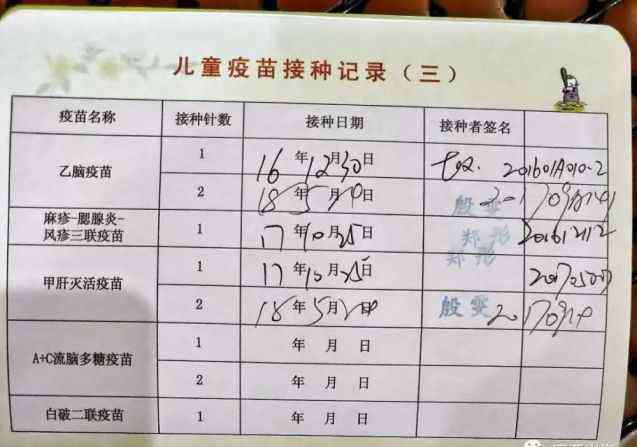 儿童疫苗接种记录（三）
疫苗名称 接种针数 接种日期 接种者签名
乙脑疫苗 1 16年12月30日 201601A010-2
2 18年5月日 殷雯
麻疹-腮腺炎-风疹三联疫苗 1 17年10月25日 郑彤 201612112
郑彤
甲肝灭活疫苗 1 17年10月25日
2 18年5月日 殷雯
A+C流脑多糖疫苗 1 年 月 日
2 年 月 日
白破二联疫苗 1 年 月 日